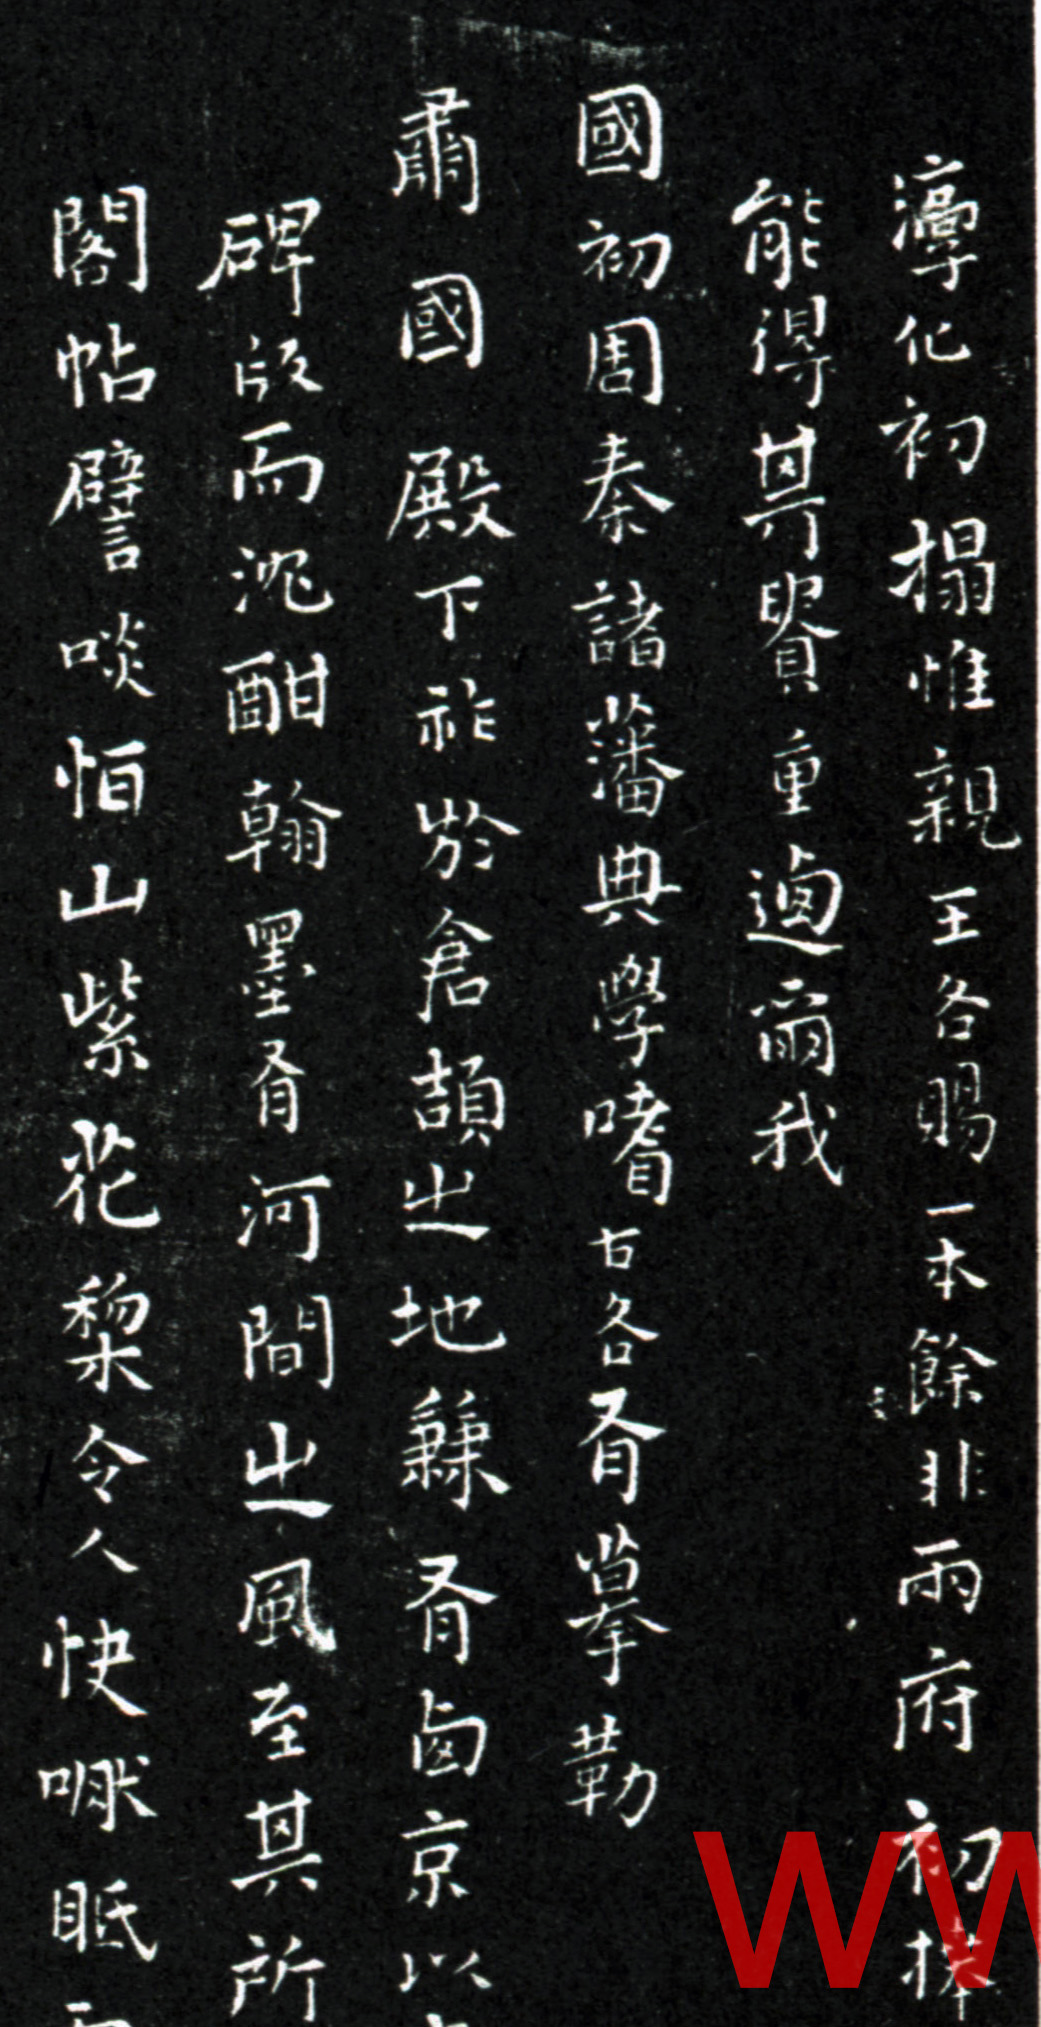 淳化初搨惟親王各賜一本餘非兩府初拜
能得其貴重迺爾我
國初周秦諸藩典學嗜古各有摹勒
肅國殿下祚於倉頡之地兼有西京以
碑版而沈酣翰墨有河間之風至其所
閣帖譬啖恒山紫花梨令人快眡